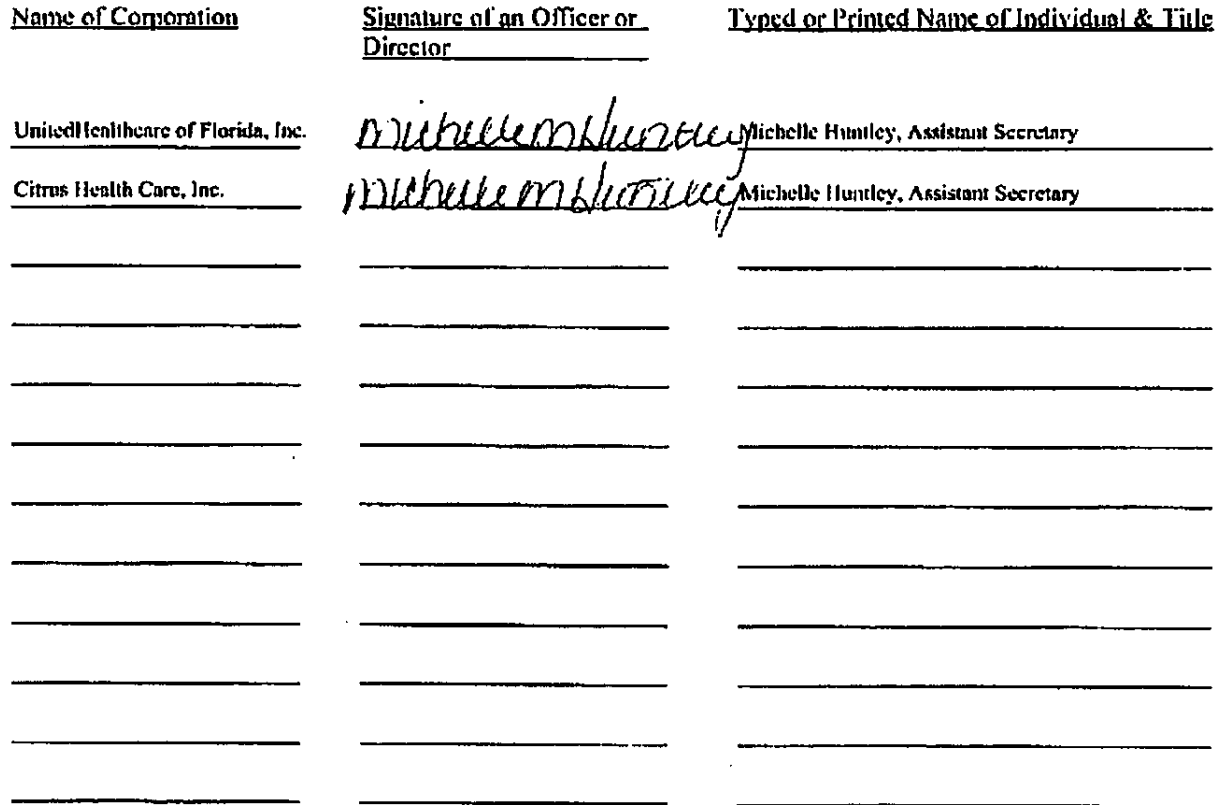 Name of Corporation
Signature of an Officer or
Director
Typed or Printed Name of Individual & Title
UnitedHealthcare of Florida, Inc.
Michelle M Huntley
Michelle Huntley, Assistant Secretary
Citrus Health Care, Inc.
Michelle M Huntley
Michelle Huntley, Assistant Secretary